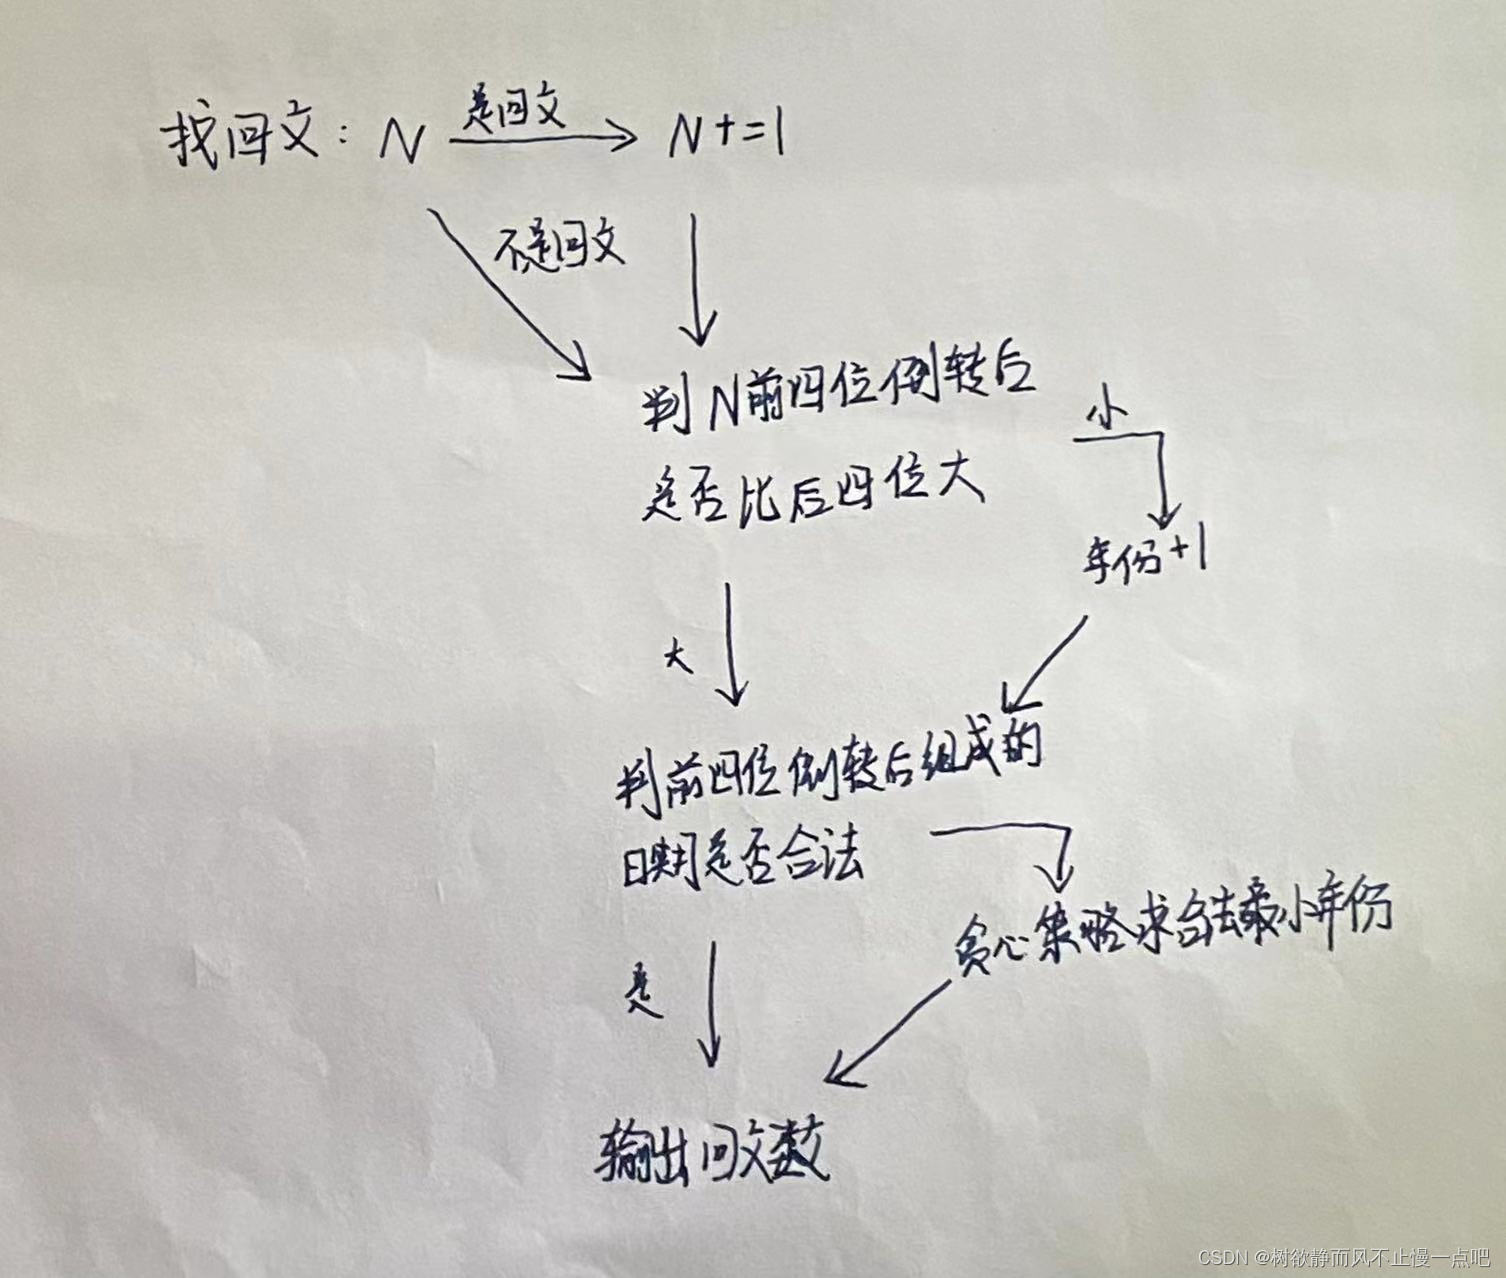 找回文: N 是回文 N+=1
不是回文
判N前四位倒转后
是否比后四位大
小
年份+1
大
判前四位倒转后组成的
日期是否合法
贪心策略求合法最小年份
是
输出回文数
CSDN @树欲静而风不止慢一点吧